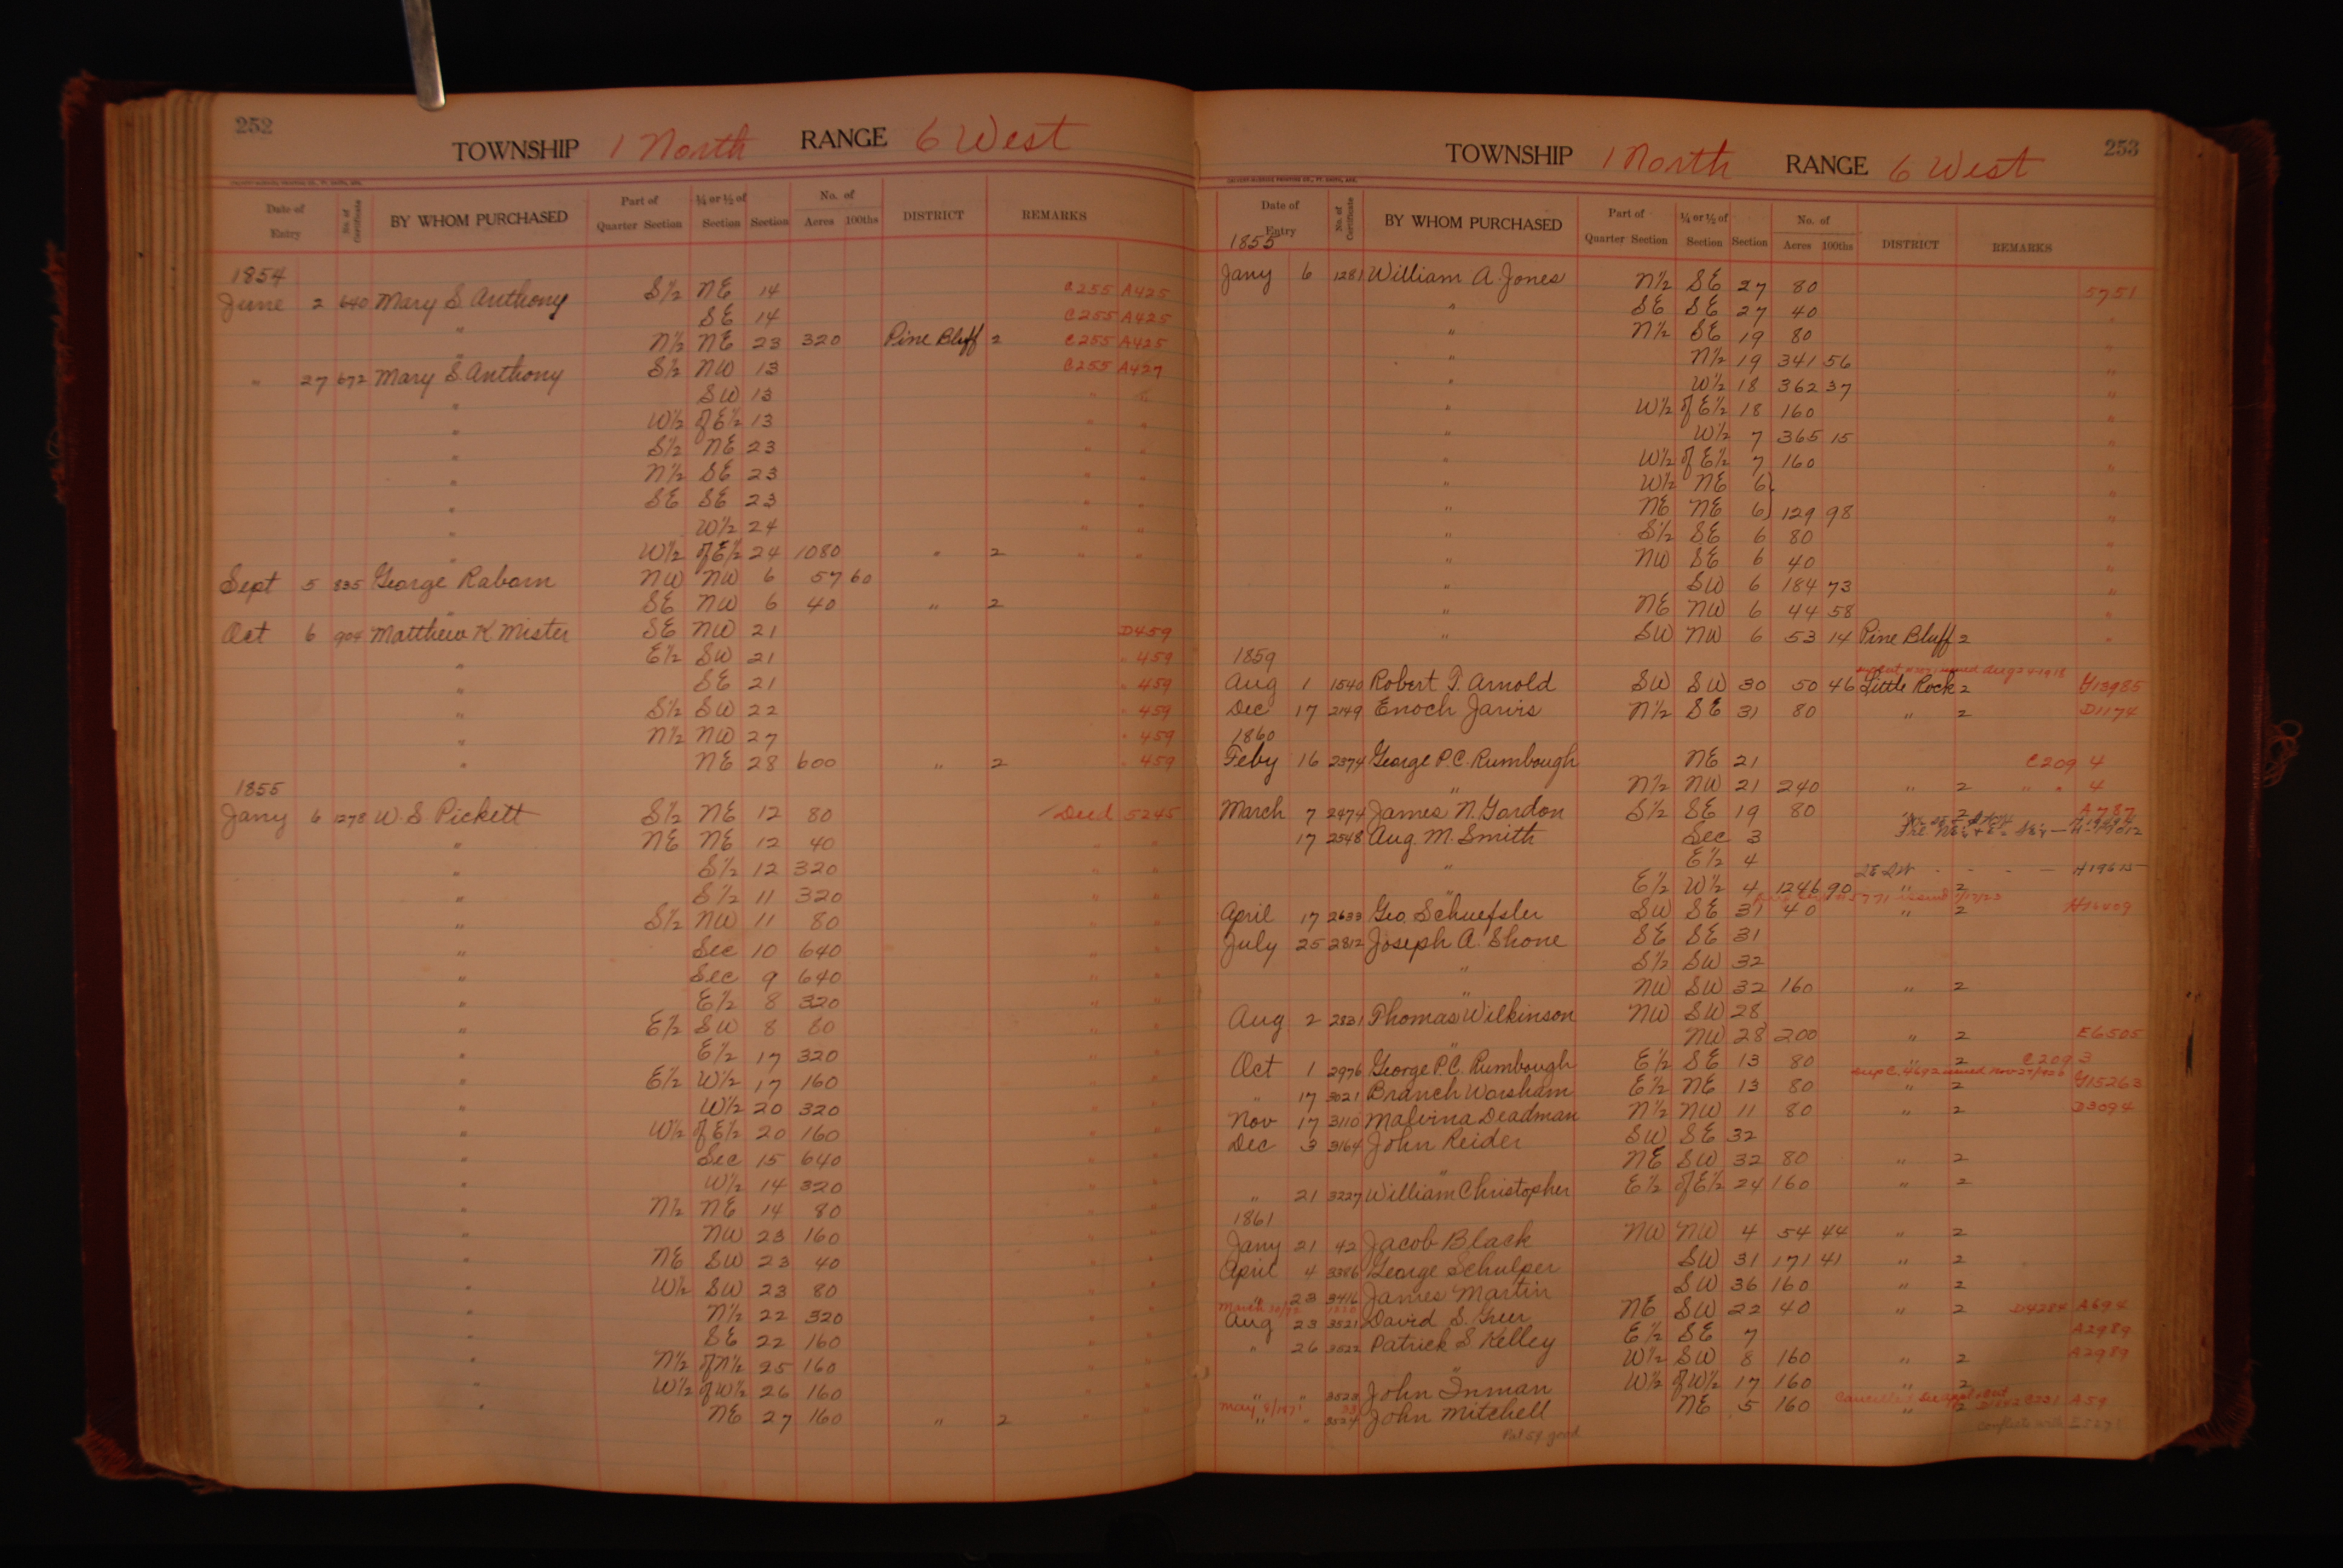 252
TOWNSHIP 1 North RANGE 6 West
Date of Entry No. of Certificate BY WHOM PURCHASED Part of Quarter Section ¼ or ½ of Section Section No. of Acres 100ths DISTRICT REMARKS
1854
June 2 640 Mary S Anthony S½ NE 14 C255 A425
" SE 14 C255 A425
" N½ NE 23 320 Pine Bluff 2 C255 A425
" 27 672 Mary S Anthony S½ NW 13 C255 A427
" SW 13 " "
" W½ of E½ 13 " "
" S½ NE 23 " "
" N½ SE 23 " "
" SE SE 23 " "
" W½ 24 " "
" W½ of E½ 24 1080 " 2 " "
Sept 5 835 George Raborn NW NW 6 57 60
" SE NW 6 40 " 2
Oct 6 904 Matthew K Mister SE NW 21 D459
" E½ SW 21 " 459
" SE 21 " 459
" S½ SW 22 " 459
" N½ NW 27 " 459
" NE 28 600 " 2 " 459
1855
Jany 6 1278 W. S Pickett S½ NE 12 80 Deed 5245
" NE NE 12 40 " "
" S½ 12 320 " "
" S½ 11 320 " "
" S½ NW 11 80 " "
" Sec 10 640 " "
" Sec 9 640 " "
" E½ 8 320 " "
" E½ SW 8 80 " "
" E½ 17 320 " "
" E½ W½ 17 160 " "
" W½ 20 320 " "
" W½ of E½ 20 160 " "
" Sec 15 640 " "
" W½ 14 320 " "
" N½ NE 14 80 " "
" NW 23 160 " "
" NE SW 23 40 " "
" W½ SW 23 80 " "
" N½ 22 320 " "
" SE 22 160 " "
" N½ of N½ 25 160 " "
" W½ of W½ 26 160 " "
" NE 27 160 " 2 " "
253
TOWNSHIP 1 North RANGE 6 West
Date of Entry No. of Certificate BY WHOM PURCHASED Part of Quarter Section ¼ or ½ of Section Section No. of Acres 100ths DISTRICT REMARKS
1855
Jany 6 1281 William A. Jones N½ SE 27 80 5751
" SE SE 27 40 "
" N½ SE 19 80 "
" N½ 19 341 56 "
" W½ 18 362 37 "
" W½ of E½ 18 160 "
" W½ 7 365 15 "
" W½ of E½ 7 160 "
" W½ NE 6 "
" NE NE 6 129 98 "
" S½ SE 6 80 "
" NW SE 6 40 "
" SW 6 184 73 "
" NE NW 6 44 58 "
" SW NW 6 53 14 Pine Bluff 2 "
1859
Aug 1 1540 Robert T. Arnold SW SW 30 50 46 Little Rock 2 H13985
Dec 17 2149 Enoch Jarvis N½ SE 31 80 " 2 D1174
1860
Feby 16 2374 George P.C. Rumbough NE 21 C209 4
" N½ NW 21 240 " 2 " " 4
March 7 2474 James N. Gordon S½ SE 19 80 " 2 A787
17 2548 Aug. M. Smith Sec 3
" E½ 4
" E½ W½ 4 1246 90 " 2
April 17 2633 Geo. Schuefsler SW SE 31 40 " 2
July 25 2812 Joseph A. Shone SE SE 31
" S½ SW 32
" NW SW 32 160 " 2
Aug 2 2831 Thomas Wilkinson NW SW 28
" NW 28 200 " 2 E6505
Oct 1 2976 George P.C. Rumbough E½ SE 13 80 " 2 C209 3
" 17 3021 Branch Worsham E½ NE 13 80 " 2 G15263
Nov 17 3110 Malvina Deadman N½ NW 11 80 " 2 D3094
Dec 3 3164 John Reider SW SE 32
" NE SW 32 80 " 2
" 21 3227 William Christopher E½ of E½ 24 160 " 2
1861
Jany 21 42 Jacob Black NW NW 4 54 44 " 2
April 4 3386 George Schulper SW 31 171 41 " 2
" 23 3416 James Martin SW 36 160 " 2
Aug 23 3521 David S. Greer NE SW 22 40 " 2 D4284 A694
" 26 3522 Patrick S. Kelley E½ SE 7 A2989
" W½ SW 8 160 " 2 A2989
" " 3523 John Inman W½ of W½ 17 160 " 2
" " 3524 John Mitchell NE 5 160 " 2 A59